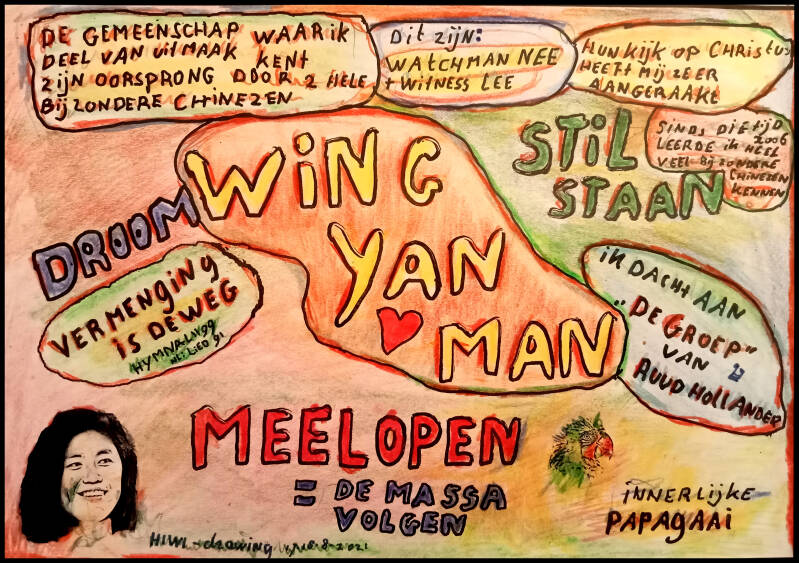 DE GEMEENSCHAP WAAR ik
DEEL VAN UiT MAAK KENT
ZijN OORSPRONG DOOR 2 HELE
BijZONDERE CHINEZEN
DiT ZijN:
WATCHMAN NEE
+ WiTNESS LEE
HUN KijK OP CHRISTUS
HEEFT MijZEER
AANGERAAKT
STiL
STAAN
SiNDS DiETijD
2006
LEERDE ik HEEL
VEEL BijZONDERE
CHINEZEN
KENNEN
WiNG
YAN
MAN
DROOM
VERMENGiNG
iS DE WEG
HYMNAL
LiED
iK DACHT AAN
"DE GROEP"
VAN
RUUD HOLLANDER
MEELOPEN
= DE MASSA
VOLGEN
iNNERLijKE
PAPAGAAi
drawing
2021